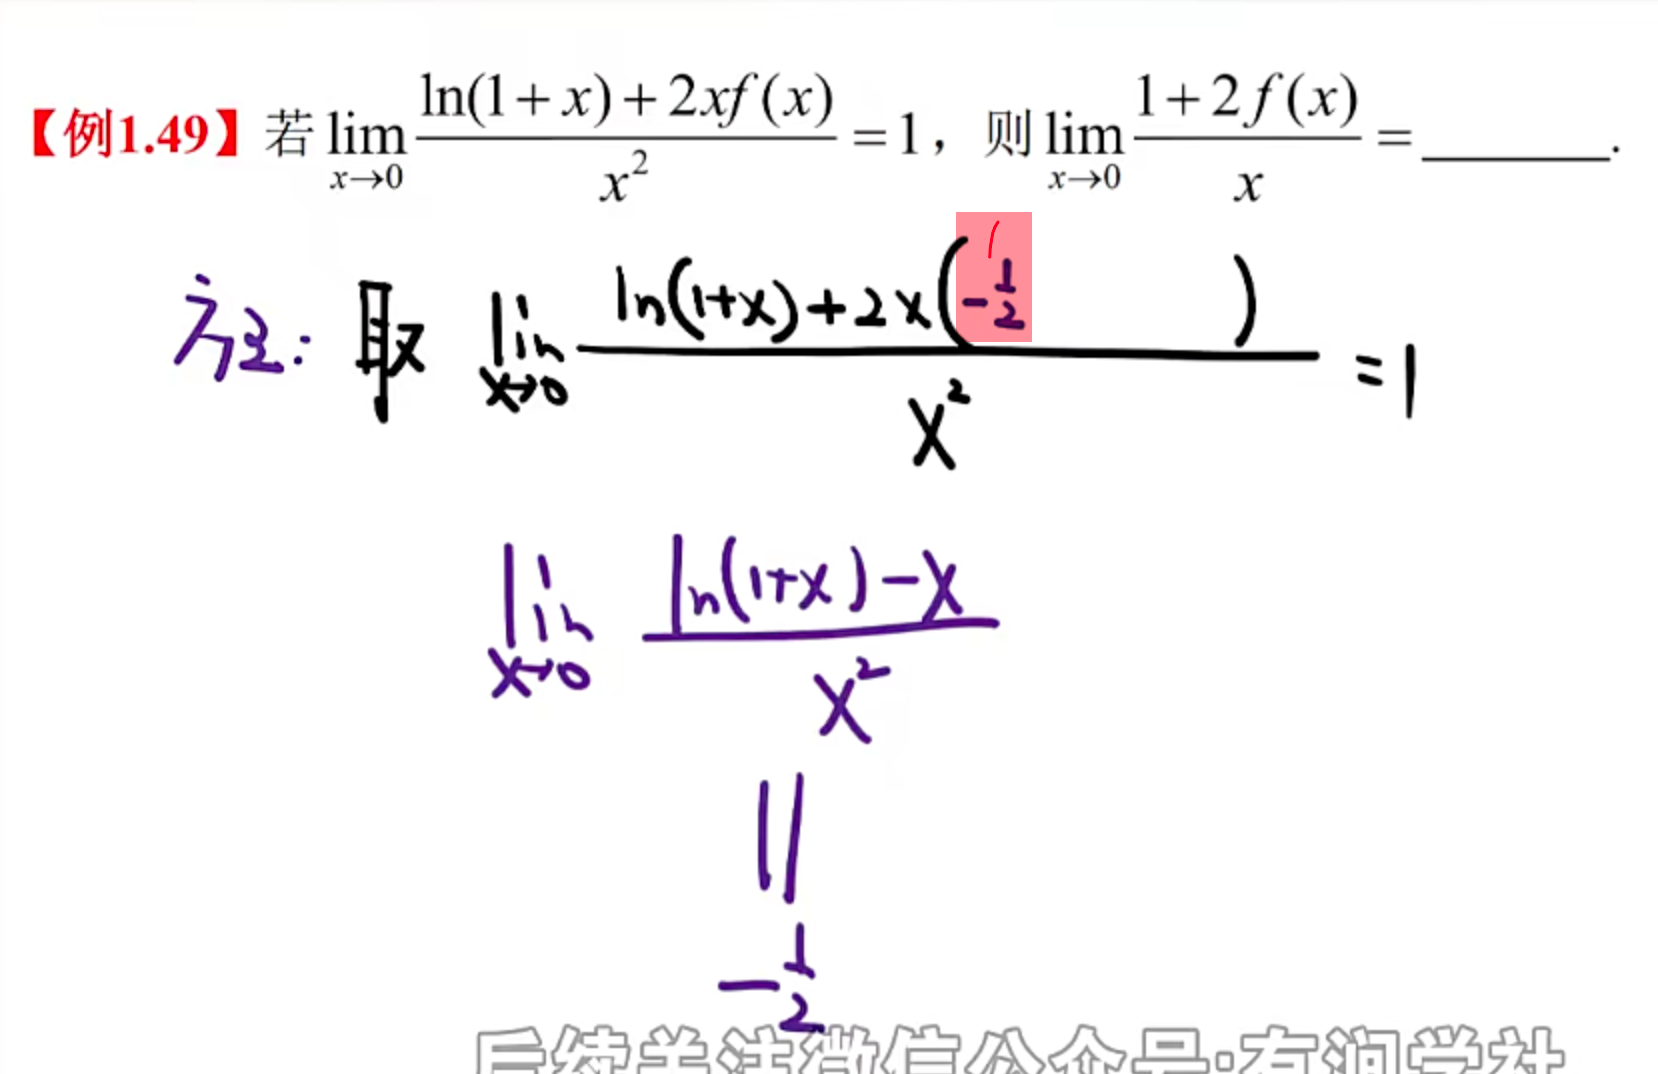 【例1.49】若 lim_{x→0} \frac{ln(1+x)+2xf(x)}{x^2} =1, 则 lim_{x→0} \frac{1+2f(x)}{x} =______.
方法: 取 lim_{x→0} \frac{ln(1+x)+2x(-\frac{1}{2} )}{x^2} =1
lim_{x→0} \frac{ln(1+x)-x}{x^2}
||
-\frac{1}{2}
后续关注微信公众号:有润学社